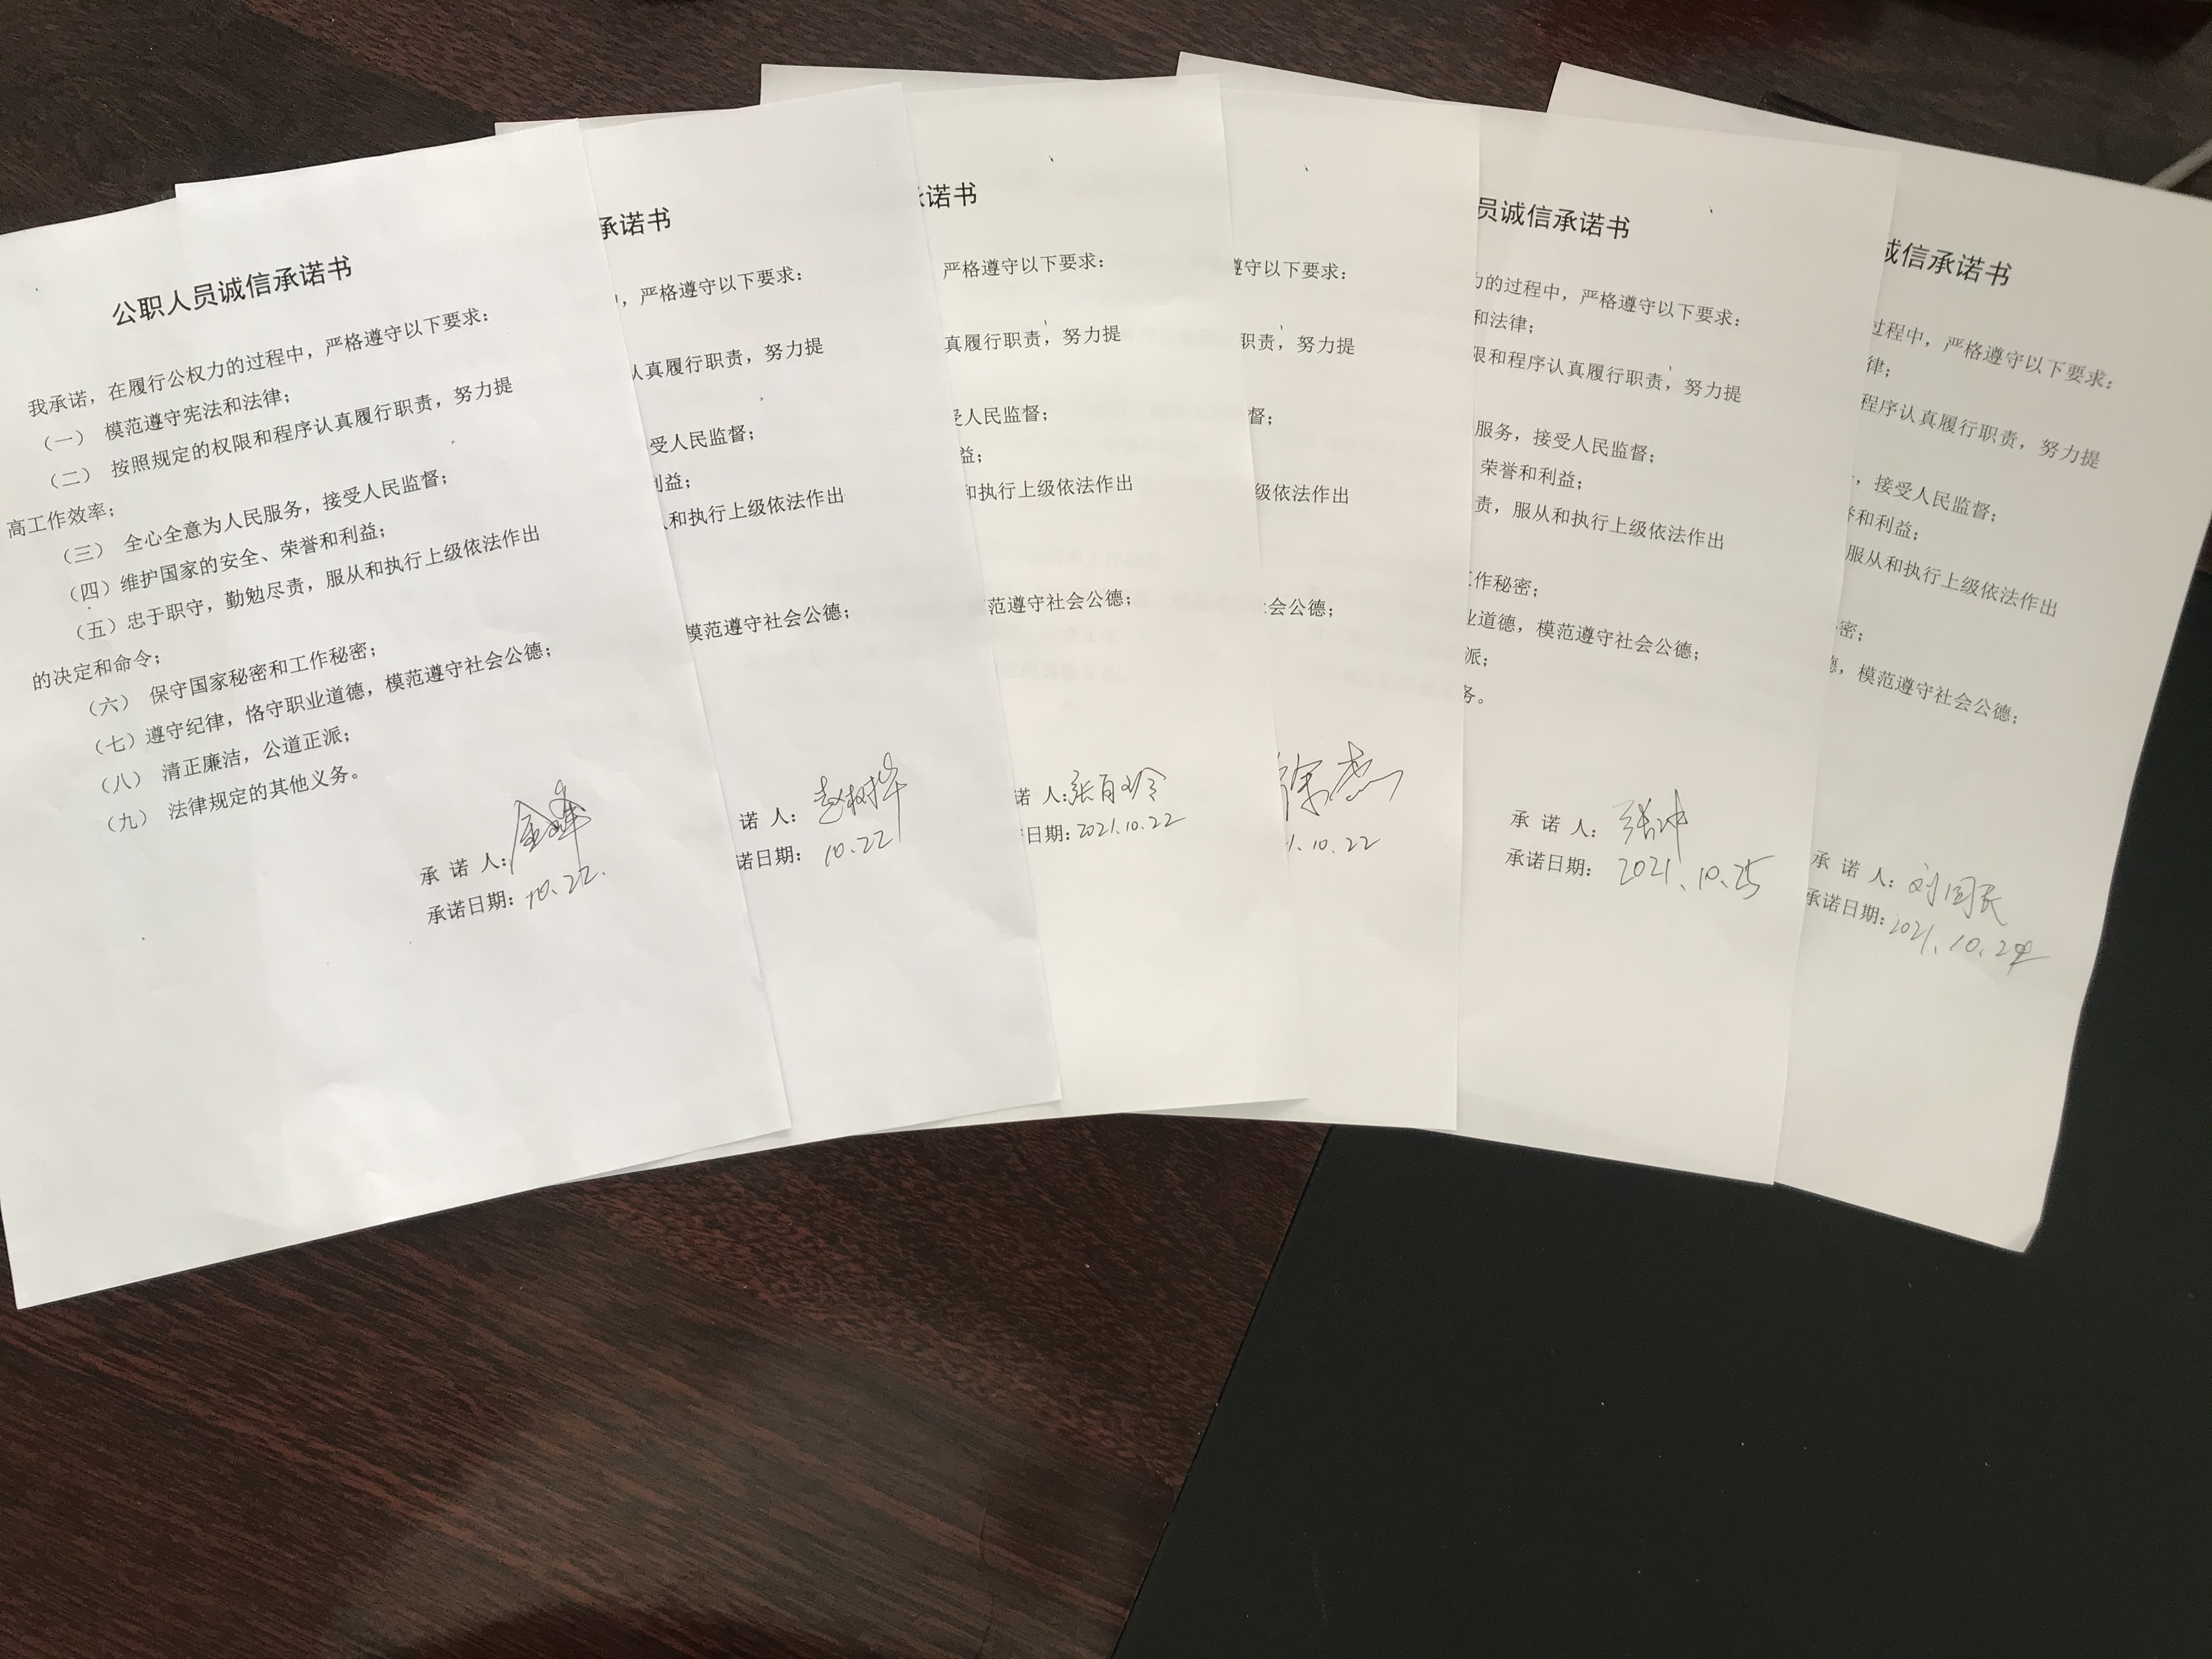 公职人员诚信承诺书
我承诺，在履行公权力的过程中，严格遵守以下要求：
（一） 模范遵守宪法和法律；
（二） 按照规定的权限和程序认真履行职责，努力提
高工作效率；
（三） 全心全意为人民服务，接受人民监督；
（四）维护国家的安全、荣誉和利益；
（五）忠于职守，勤勉尽责，服从和执行上级依法作出
的决定和命令；
（六） 保守国家秘密和工作秘密；
（七）遵守纪律，恪守职业道德，模范遵守社会公德；
（八） 清正廉洁，公道正派；
（九） 法律规定的其他义务。
承 诺 人：金峰
承诺日期：10.22.
承诺书
，严格遵守以下要求：
认真履行职责，努力提
受人民监督；
利益；
和执行上级依法作出
模范遵守社会公德；
诺 人：赵树桦
诺日期： 10.22
诺书
严格遵守以下要求：
真履行职责，努力提
受人民监督；
益；
和执行上级依法作出
范遵守社会公德；
诺 人：张百玲
日期：2021.10.22
遵守以下要求：
职责，努力提
督；
级依法作出
会公德；
徐杰
1.10.22
员诚信承诺书
力的过程中，严格遵守以下要求：
和法律；
限和程序认真履行职责，努力提
服务，接受人民监督；
荣誉和利益；
责，服从和执行上级依法作出
工作秘密；
业道德，模范遵守社会公德；
派；
务。
承 诺 人：张冲
承诺日期： 2021.10.25
诚信承诺书
过程中，严格遵守以下要求：
律；
程序认真履行职责，努力提
，接受人民监督；
和利益；
服从和执行上级依法作出
密；
德，模范遵守社会公德；
承 诺 人：刘国民
承诺日期：2021.10.22